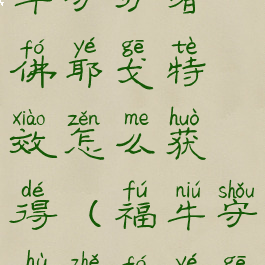 fó yé gē tè
佛耶戈特
xiào zěn me huò
效怎么获
dé fú niú shǒu
得(福牛守
hù zhě fó yé gē